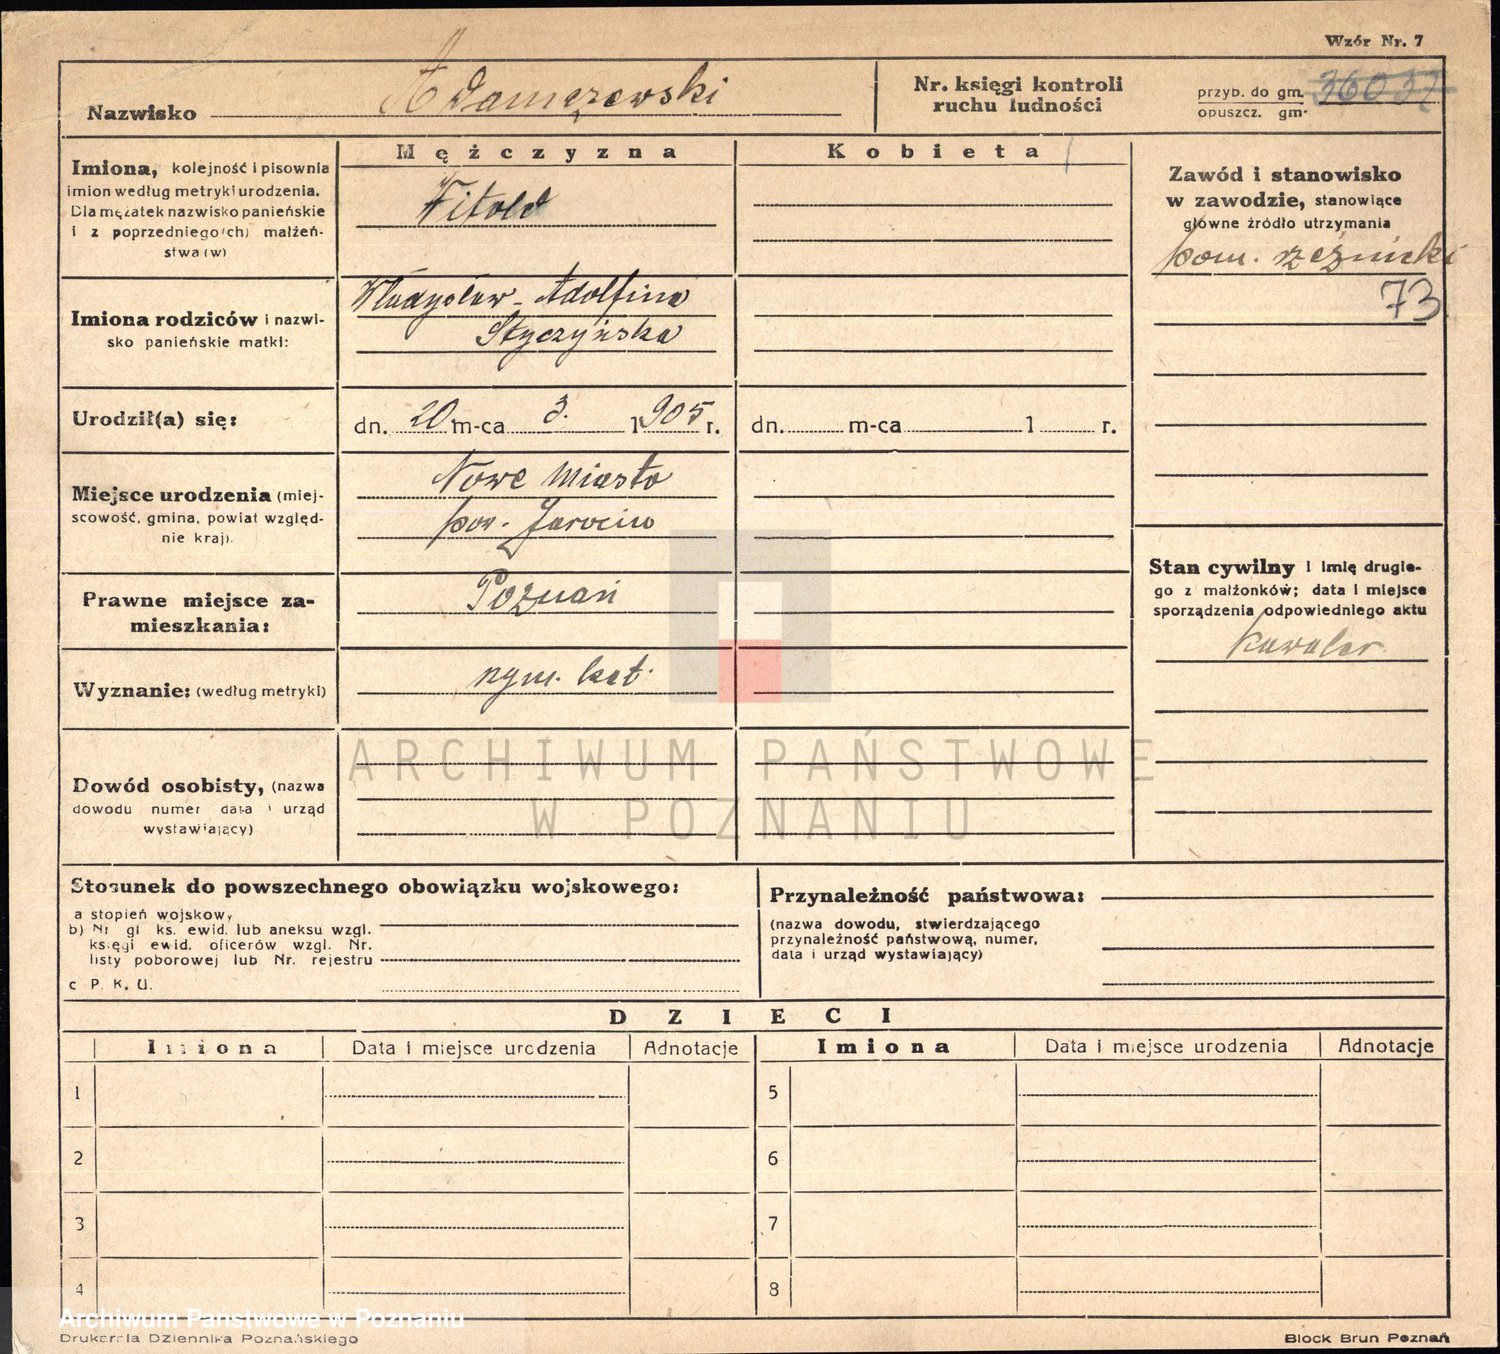 Wzór Nr. 7
Nazwisko Adamczewski
Nr. księgi kontroli
ruchu ludności
przyb. do gm. 36037
opuszcz. gm.
Mężczyzna
Kobieta
Imiona, kolejność i pisownia
imion według metryki urodzenia.
Dla mężatek nazwisko panieńskie
i z poprzedniego(ch) małżeń-
stwa (w)
Witold
Zawód i stanowisko
w zawodzie, stanowiące
główne źródło utrzymania
pom. rzeźnicki
73
Imiona rodziców i nazwi-
sko panieńskie matki:
Władysław - Adolfina
Styczyńska
Urodził(a) się:
dn. 20 m-ca 3. 1905 r.
dn. m-ca 1 r.
Miejsce urodzenia (miej-
scowość, gmina, powiat względ-
nie kraj).
Nowe Miasto
pow. Jarocin
Prawne miejsce za-
mieszkania:
Poznań
Stan cywilny i imię drugie-
go z małżonków; data i miejsce
sporządzenia odpowiedniego aktu
kawaler
Wyznanie: (według metryki)
rzym. kat.
Dowód osobisty, (nazwa
dowodu numer data i urząd
wystawiający)
ARCHIWUM PAŃSTWOWE
W POZNANIU
Stosunek do powszechnego obowiązku wojskowego:
a stopień wojskowy
b) Nr gl ks. ewid. lub aneksu wzgl.
księgi ewid. oficerów wzgl. Nr.
listy poborowej lub Nr. rejestru
c P. K. U.
Przynależność państwowa:
(nazwa dowodu, stwierdzającego
przynależność państwową, numer,
data i urząd wystawiający)
DZIECI
Imiona Data i miejsce urodzenia Adnotacje Imiona Data i miejsce urodzenia Adnotacje
1 5
2 6
3 7
4 8
Archiwum Państwowe w Poznaniu
Drukarnia Dziennika Poznańskiego
Block Brun Poznań